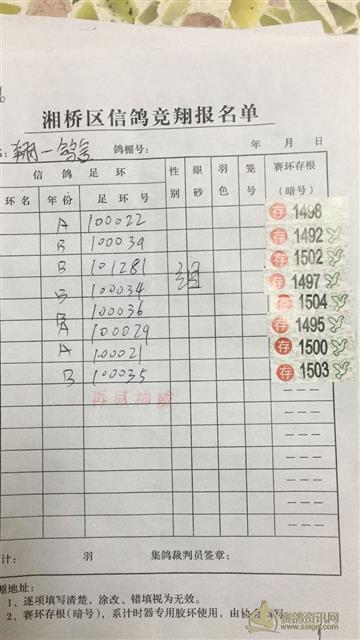 湘桥区信鸽竞翔报名单
翔一鸽舍 鸽棚号： 年 月 日
信鸽足环 性别 眼砂 羽色 笼号 赛环存根（暗号）
环名 年份 足环号
A 100022 存 1498
B 100039 存 1492
B 101281 存 1502
B 100034 存 1497
B 100036 存 1504
A 100029 存 1495
A 100021 存 1500
B 100035 存 1503
计： 羽 集鸽裁判员签章：
棚地址：
1、逐项填写清楚，涂改、错填视为无效。
2、赛环存根（暗号），系计时器专用胶环使用，由协会填写
赛鸽资讯网
www.saigе.com